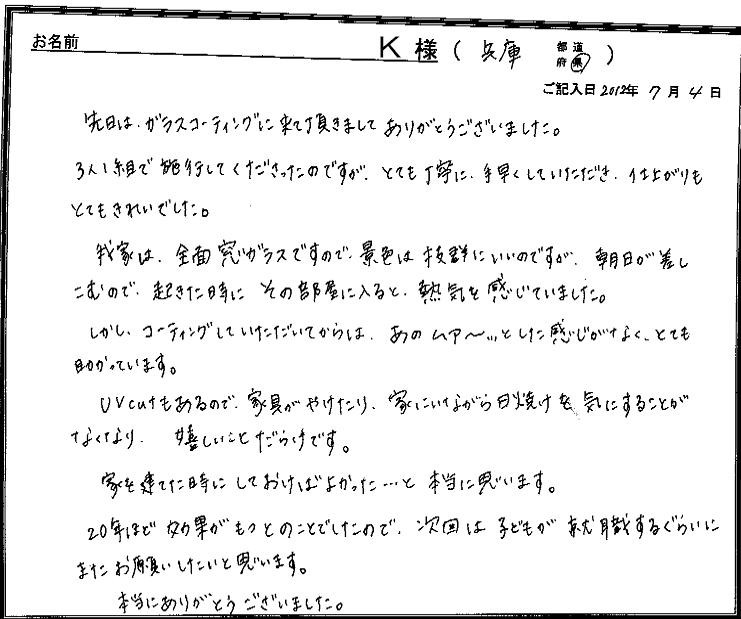 お名前 K 様 ( 兵庫 都道府県 )
ご記入日 2012年 7月 4日
先日は、ガラスコーティングに来て頂きまして ありがとうございました。
3人1組で 施行してくださったのですが、とても 丁寧に、手早くしていただき、仕上がりも
とてもきれいでした。
我家は、全面 窓ガラスですので、景色は 抜群にいいのですが、朝日が 差し
こむので、起きた時に その部屋に入ると、熱気を 感じていました。
しかし、コーティングしていただいてからは、あの ムア〜ッとした 感じがなく、とても
助かっています。
UVcutもあるので、家具が やけたり、家にいながら 日焼けを 気にすることが
なくなり、嬉しいことだらけです。
家を 建てた時に しておけばよかった…と 本当に思います。
20年ほど 効果が もつとのことでしたので、次回は 子どもが 就職するぐらいに
また お願いしたいと思います。
本当にありがとう ございました。